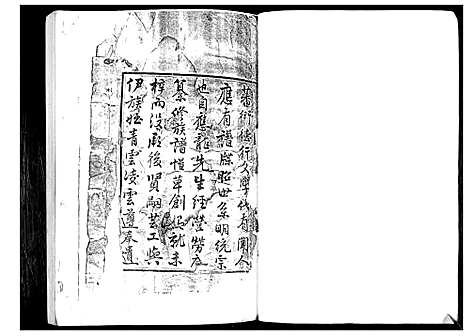 藝術德行人學代有聞人
應有譜牒昭世系明統宗
也自應龍先生經營勞瘁
纂修族譜惜草創伊就未
梓而沒厥後賢嗣芸工與
伊族姪青雲凌雲道奉遺